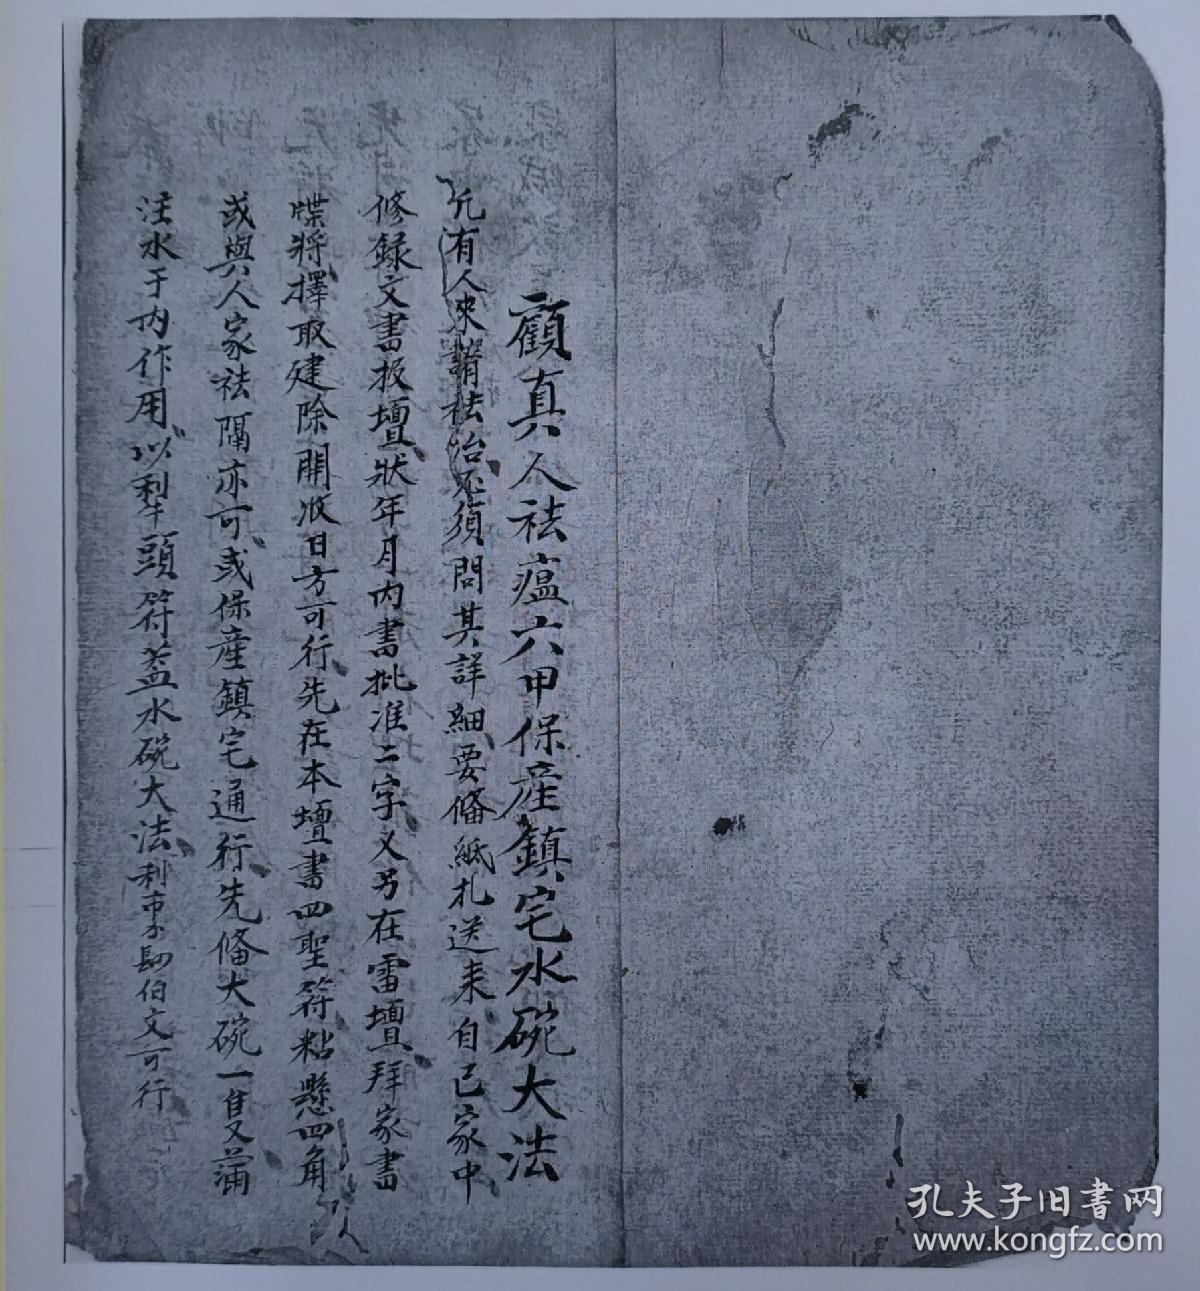 顧真人祛瘟六甲保産鎮宅水碗大法
凢有人来請祛治必須問其詳細要俻紙扎送来自己家中
修録文書投壇狀年月内書批准二字又另在雷壇拜家書
牒將擇取建除開收日方可行先在本壇書四聖符粘懸四角
或與人家祛隔亦可或保産鎮宅通行先俻大碗一隻蒲
注水于内作用以犁頭符蓋水碗大法利市伯文可行
孔夫子旧書网
www.kongfz.com